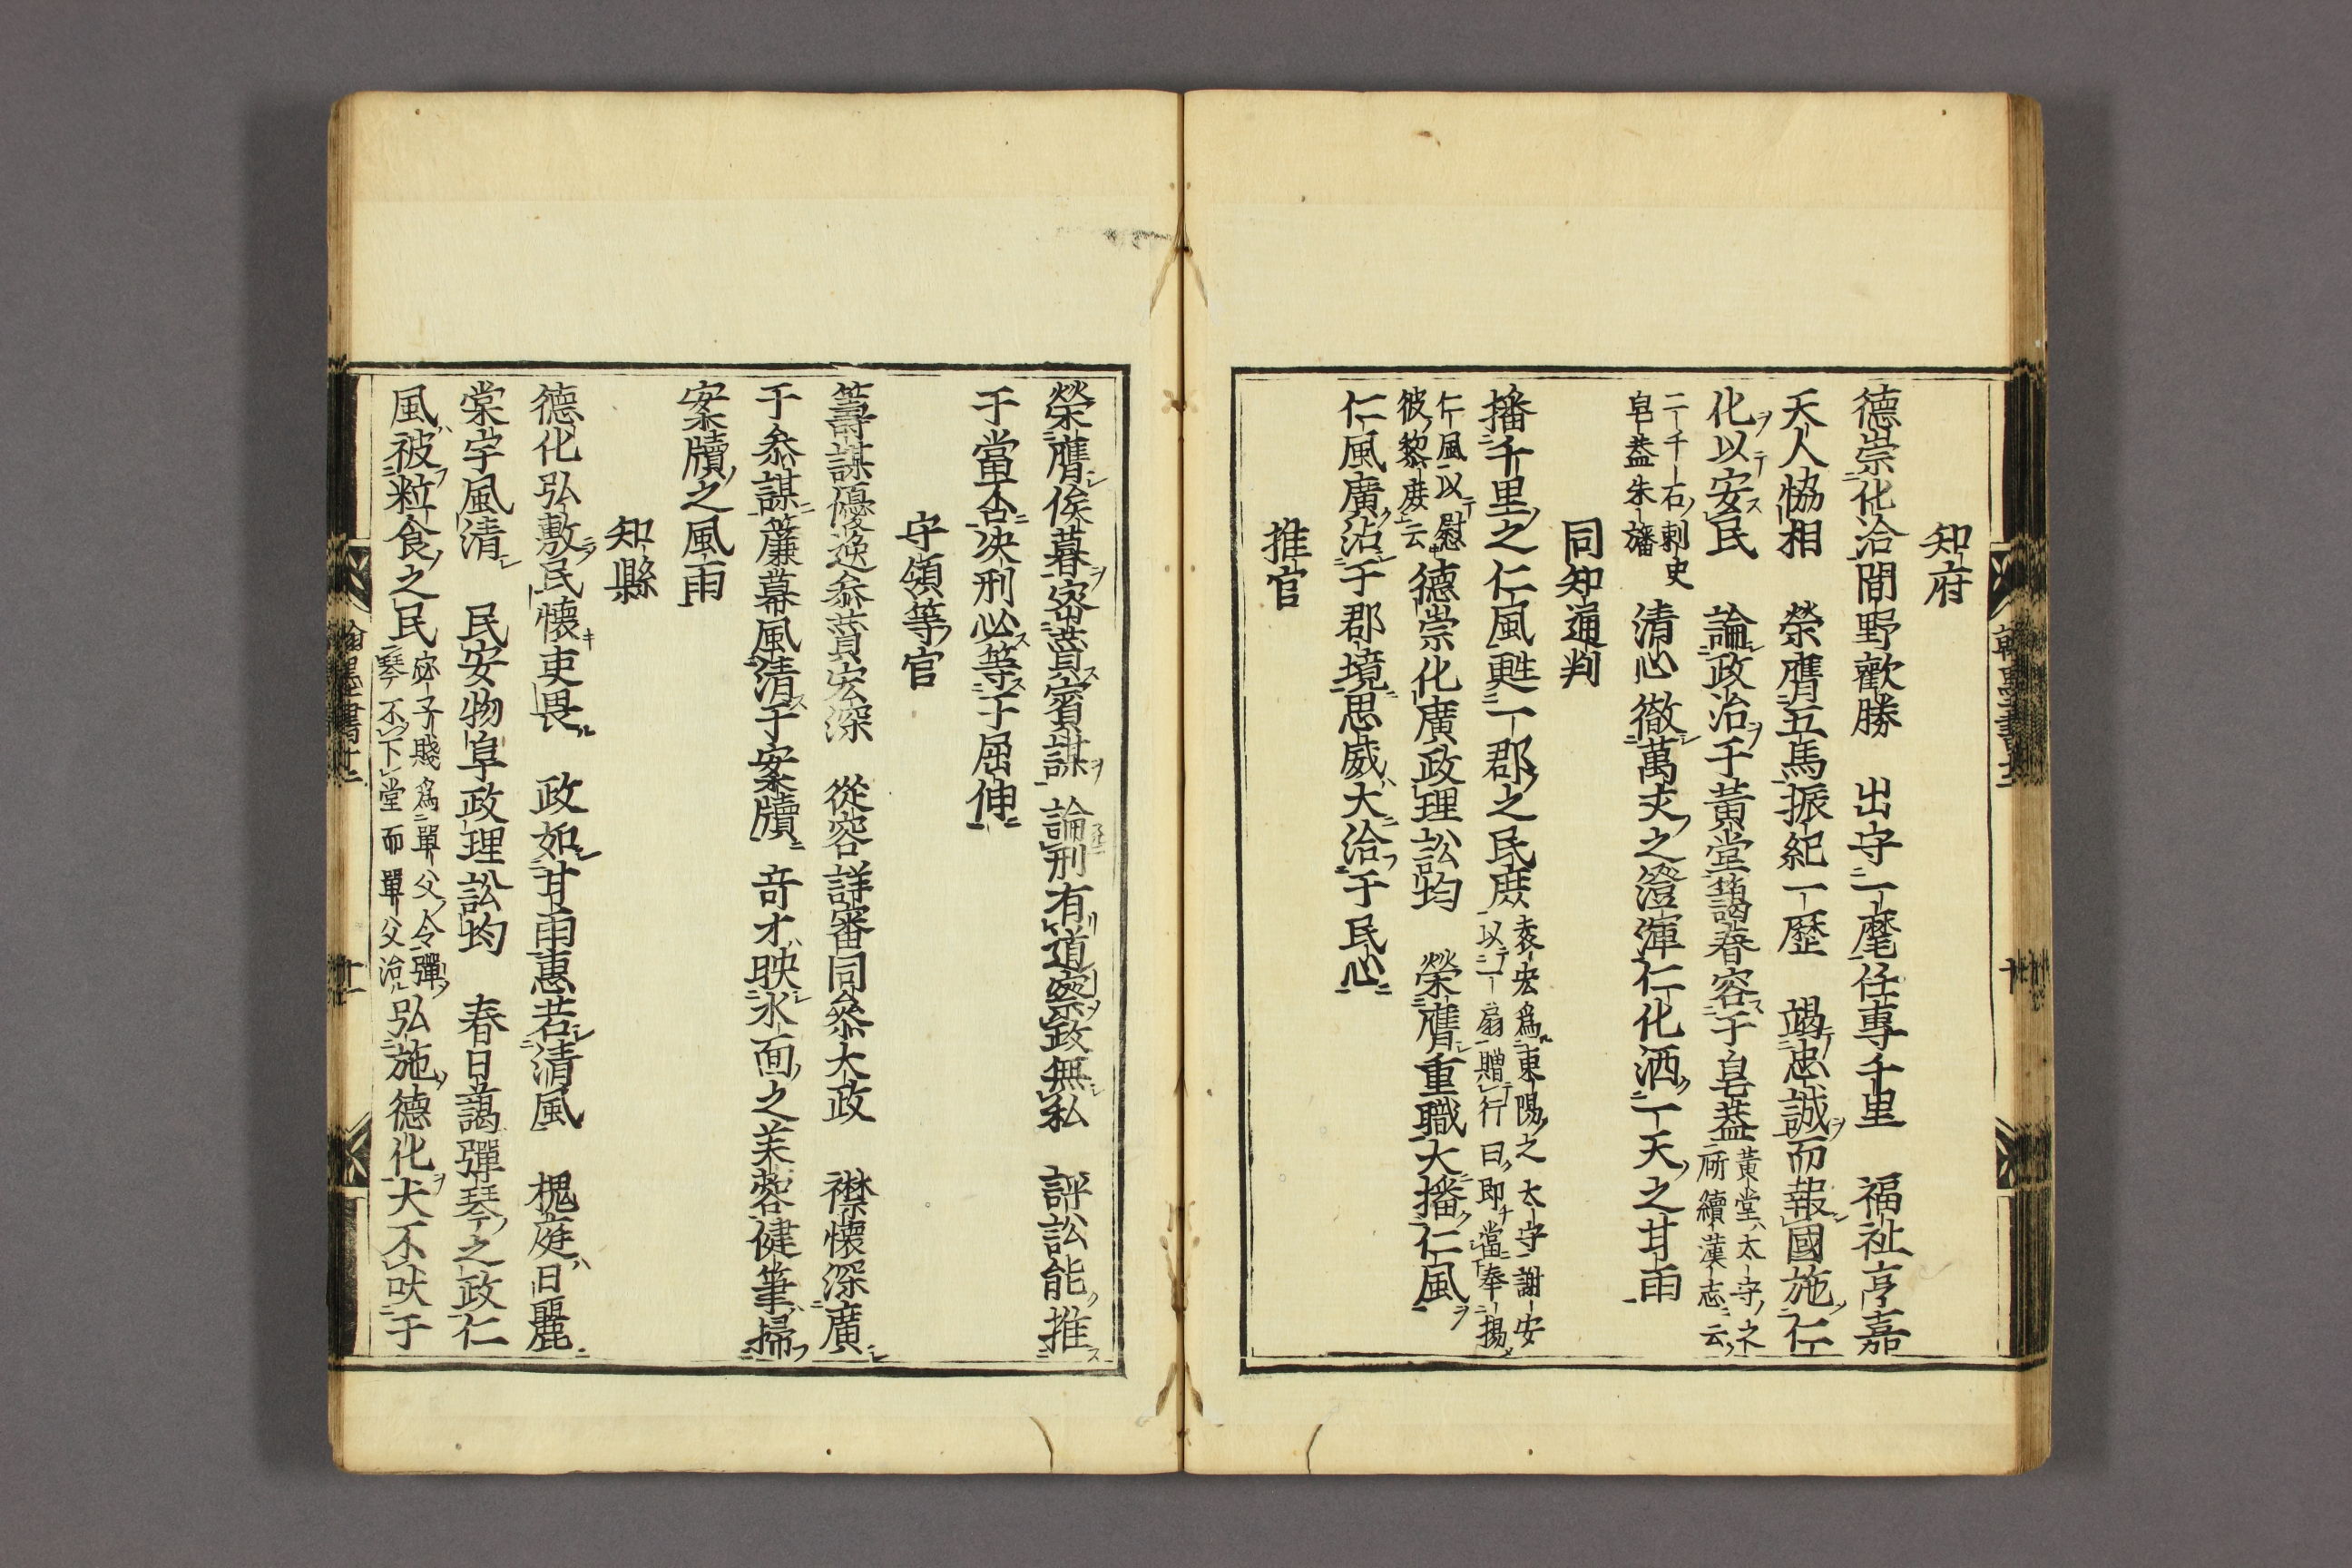 知府
德崇化洽間野歡勝　出守一麾任專千里　福祉亨嘉
天人恊相　榮膺五馬振紀一歷　竭忠誠而報國施仁
化以安民　論政治于黃堂藹春容于皂蓋黃堂太守之
所續漢志云
二千石刺史
皂蓋朱旛　清心徹萬丈之澄渾仁化洒一天之甘雨
同知通判
播千里之仁風甦一郡之民庶袁宏爲東陽之太守謝安
以一扇贈行曰即當奉揚
仁風以慰
彼黎庶云　德崇化廣政理訟均　榮膺重職大播仁風
仁風廣沾于郡境思威大洽于民心
推官
榮膺侯暮密賛賓謀　論刑有道察政無私　評訟能推
于當否决刑必等于屈伸
守領等官
籌謀優逸叅賛宏深　從容詳審同叅大政　襟懷深廣
于叅謀簾幕風清于案牘　竒才映氷面之芙蓉健筆掃
案牘之風雨
知縣
德化弘敷民懐吏畏　政如甘雨惠若清風　槐庭日麗
棠宇風清　民安物阜政理訟均　春日藹彈琴之政仁
風被粒食之民宓子賤爲單父令彈
琴不下堂而單父治　弘施德化犬不吠于
翰墨書十二
十一